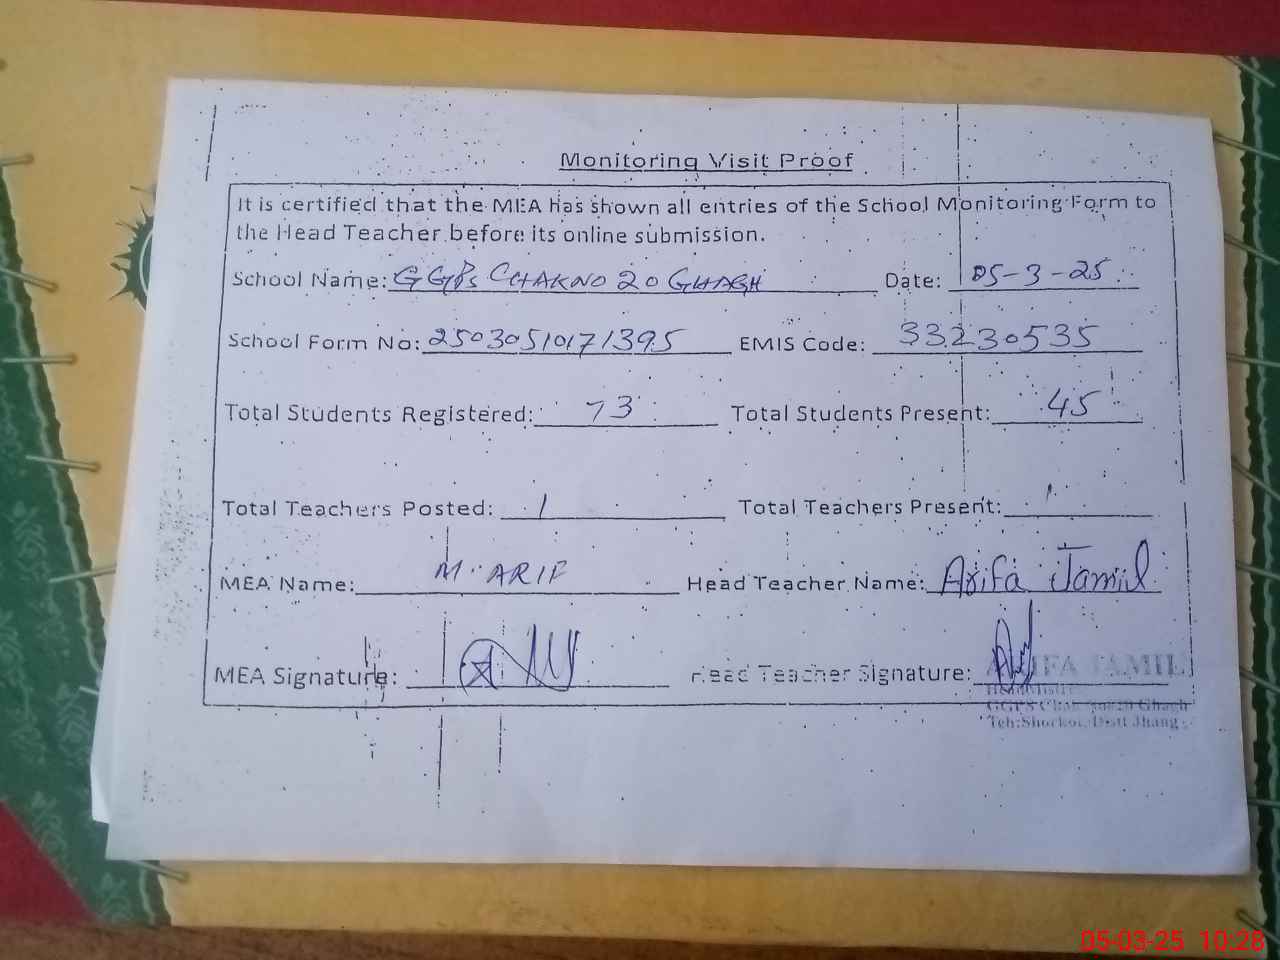 Monitoring Visit Proof
It is certified that the MEA has shown all entries of the School Monitoring Form to
the Head Teacher before its online submission.
School Name: GGPS CHAKNO 20 GHAGH Date: 05-3-25
School Form No: 25030510171395 EMIS Code: 33230535
Total Students Registered: 73 Total Students Present: 45
Total Teachers Posted: 1 Total Teachers Present: 1
MEA Name: M. ARIF Head Teacher Name: Arifa Jamil
MEA Signature: Head Teacher Signature:
ARIFA JAMIL
GGPS Chak No:20 Ghagh
Teh:Shorkot, Distt Jhang
05-03-25 10:28